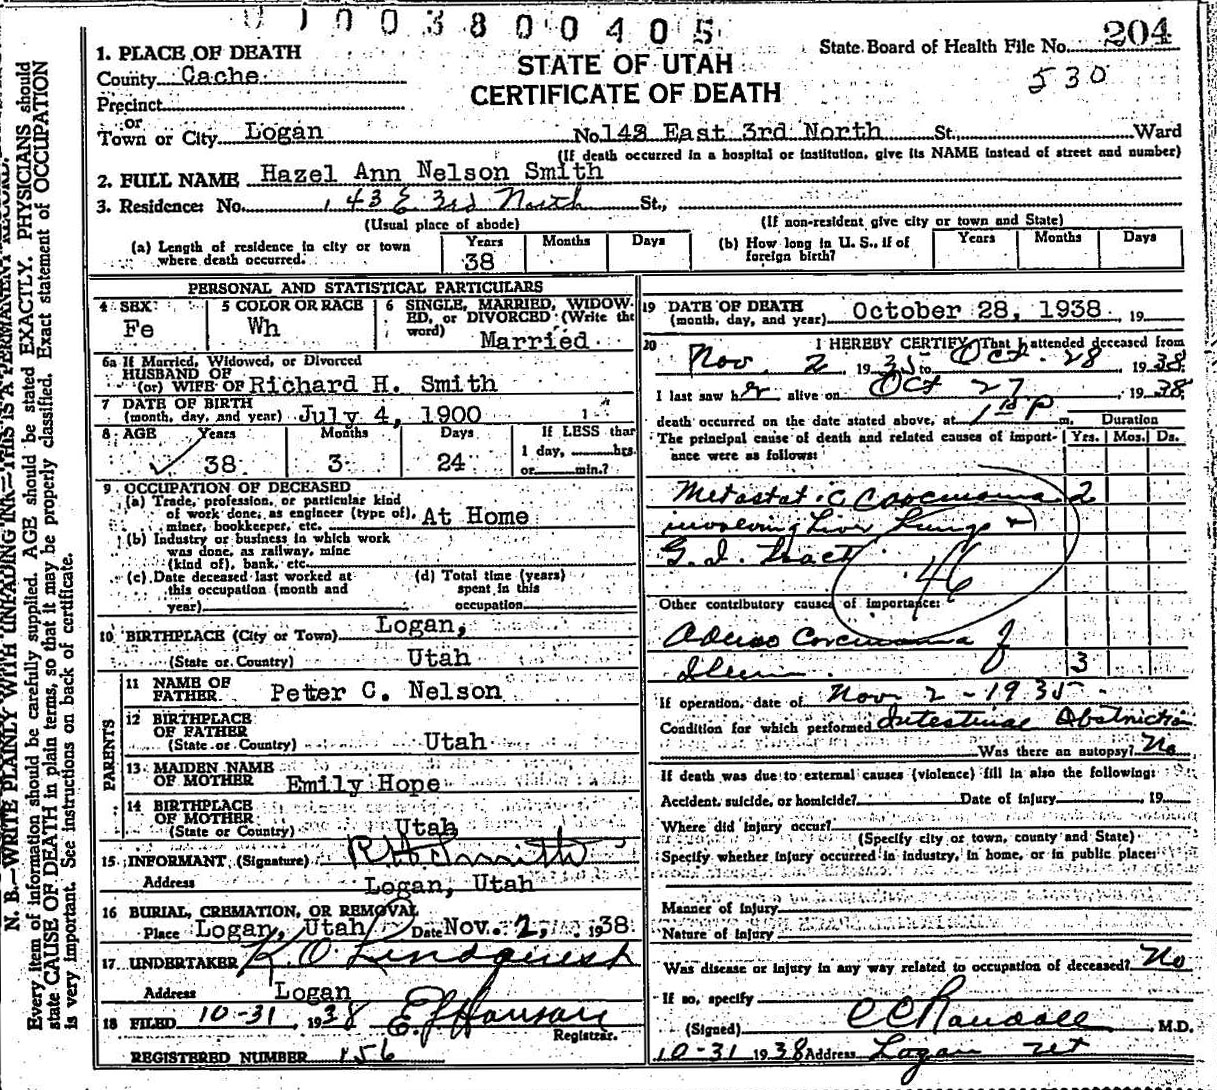 01003800405
State Board of Health File No. 204
530
STATE OF UTAH
CERTIFICATE OF DEATH
1. PLACE OF DEATH
County Cache
Precinct
or
Town or City Logan No. 143 East 3rd North St. Ward
(If death occurred in a hospital or institution, give its NAME instead of street and number)
2. FULL NAME Hazel Ann Nelson Smith
3. Residence: No. 143 E 3rd North St.,
(Usual place of abode) (If non-resident give city or town and State)
(a) Length of residence in city or town where death occurred. Years 38 Months Days
(b) How long in U. S., if of foreign birth? Years Months Days
PERSONAL AND STATISTICAL PARTICULARS
4 SEX Fe
5 COLOR OR RACE Wh
6 SINGLE, MARRIED, WIDOWED, or DIVORCED (Write the word) Married
6a If Married, Widowed, or Divorced
HUSBAND OF
(or) WIFE OF Richard H. Smith
7 DATE OF BIRTH
(month, day, and year) July 4, 1900
8 AGE Years 38 Months 3 Days 24
If LESS than
1 day, hrs.
or min.?
9 OCCUPATION OF DECEASED
(a) Trade, profession, or particular kind
of work done, as engineer (type of),
miner, bookkeeper, etc. At Home
(b) Industry or business in which work
was done, as railway, mine
(kind of), bank, etc.
(c) Date deceased last worked at
this occupation (month and
year)
(d) Total time (years)
spent in this
occupation
10 BIRTHPLACE (City or Town) Logan,
(State or Country) Utah
PARENTS
11 NAME OF
FATHER Peter C. Nelson
12 BIRTHPLACE
OF FATHER
(State or Country) Utah
13 MAIDEN NAME
OF MOTHER Emily Hope
14 BIRTHPLACE
OF MOTHER
(State or Country) Utah
15 INFORMANT (Signature) R H Smith
Address Logan, Utah
16 BURIAL, CREMATION, OR REMOVAL
Place Logan, Utah Date Nov. 2, 1938
17 UNDERTAKER K. O. Lindquist
Address Logan
18 FILED 10-31, 1938 E. J. Hanson
Registrar.
REGISTERED NUMBER 156
19 DATE OF DEATH
(month, day, and year) October 28, 1938 19
20 I HEREBY CERTIFY, That I attended deceased from
Nov. 2 1935 to Oct. 28 1938
I last saw her alive on Oct 27, 1938
death occurred on the date stated above, at P m. Duration
The principal cause of death and related causes of importance were as follows: Yrs. Mos. Ds.
Metastatic Carcinoma 2
involving Liver Lungs &
G. I. Tract
46
Other contributory causes of importance:
Adeno Carcinoma of
Ileum 3
If operation, date of Nov 2 - 1935
Condition for which performed Intestinal Obstruction
Was there an autopsy? No
If death was due to external causes (violence) fill in also the following:
Accident, suicide, or homicide? Date of injury , 19
Where did injury occur?
(Specify city or town, county and State)
Specify whether injury occurred in industry, in home, or in public place:
Manner of injury
Nature of injury
Was disease or injury in any way related to occupation of deceased? No
If so, specify
(Signed) C C Randall M.D.
10-31 1938 Address Logan Ut
N. B.—WRITE PLAINLY WITH UNFADING INK—THIS IS A PERMANENT RECORD.
Every item of information should be carefully supplied. AGE should be stated EXACTLY. PHYSICIANS should
state CAUSE OF DEATH in plain terms, so that it may be properly classified. Exact statement of OCCUPATION
is very important. See instructions on back of certificate.